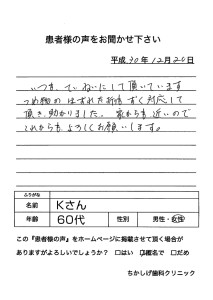 患者様の声をお聞かせ下さい
平成30年12月20日
いつも、ていねいにして頂いています
つめ物のはずれた折もすぐ対応して
頂き、助かりました。家からも近いので
これからもよろしくお願いします。
ふりがな
名前 Kさん
年齢 60代 性別 男性・女性
この『患者様の声』をホームページに掲載させて頂く場合が
ありますがよろしいでしょうか? □はい ☑匿名で □だめ
ちかしげ歯科クリニック